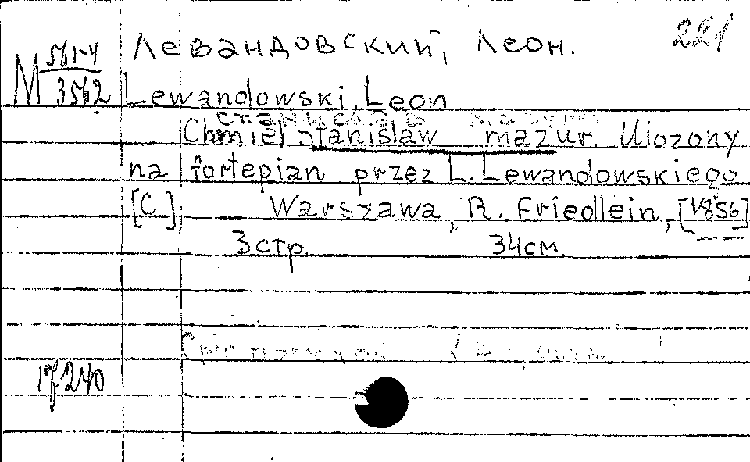 Левандовский, Леон. 221
M 561-4
3562
Lewandowski, Leon
Chmiel Stanislaw mazur. Ulozony
na fortepian przez L. Lewandowskiego
[C.] Warszawa, R. Friedlein, [1856]
3 стр. 34 см.
17240